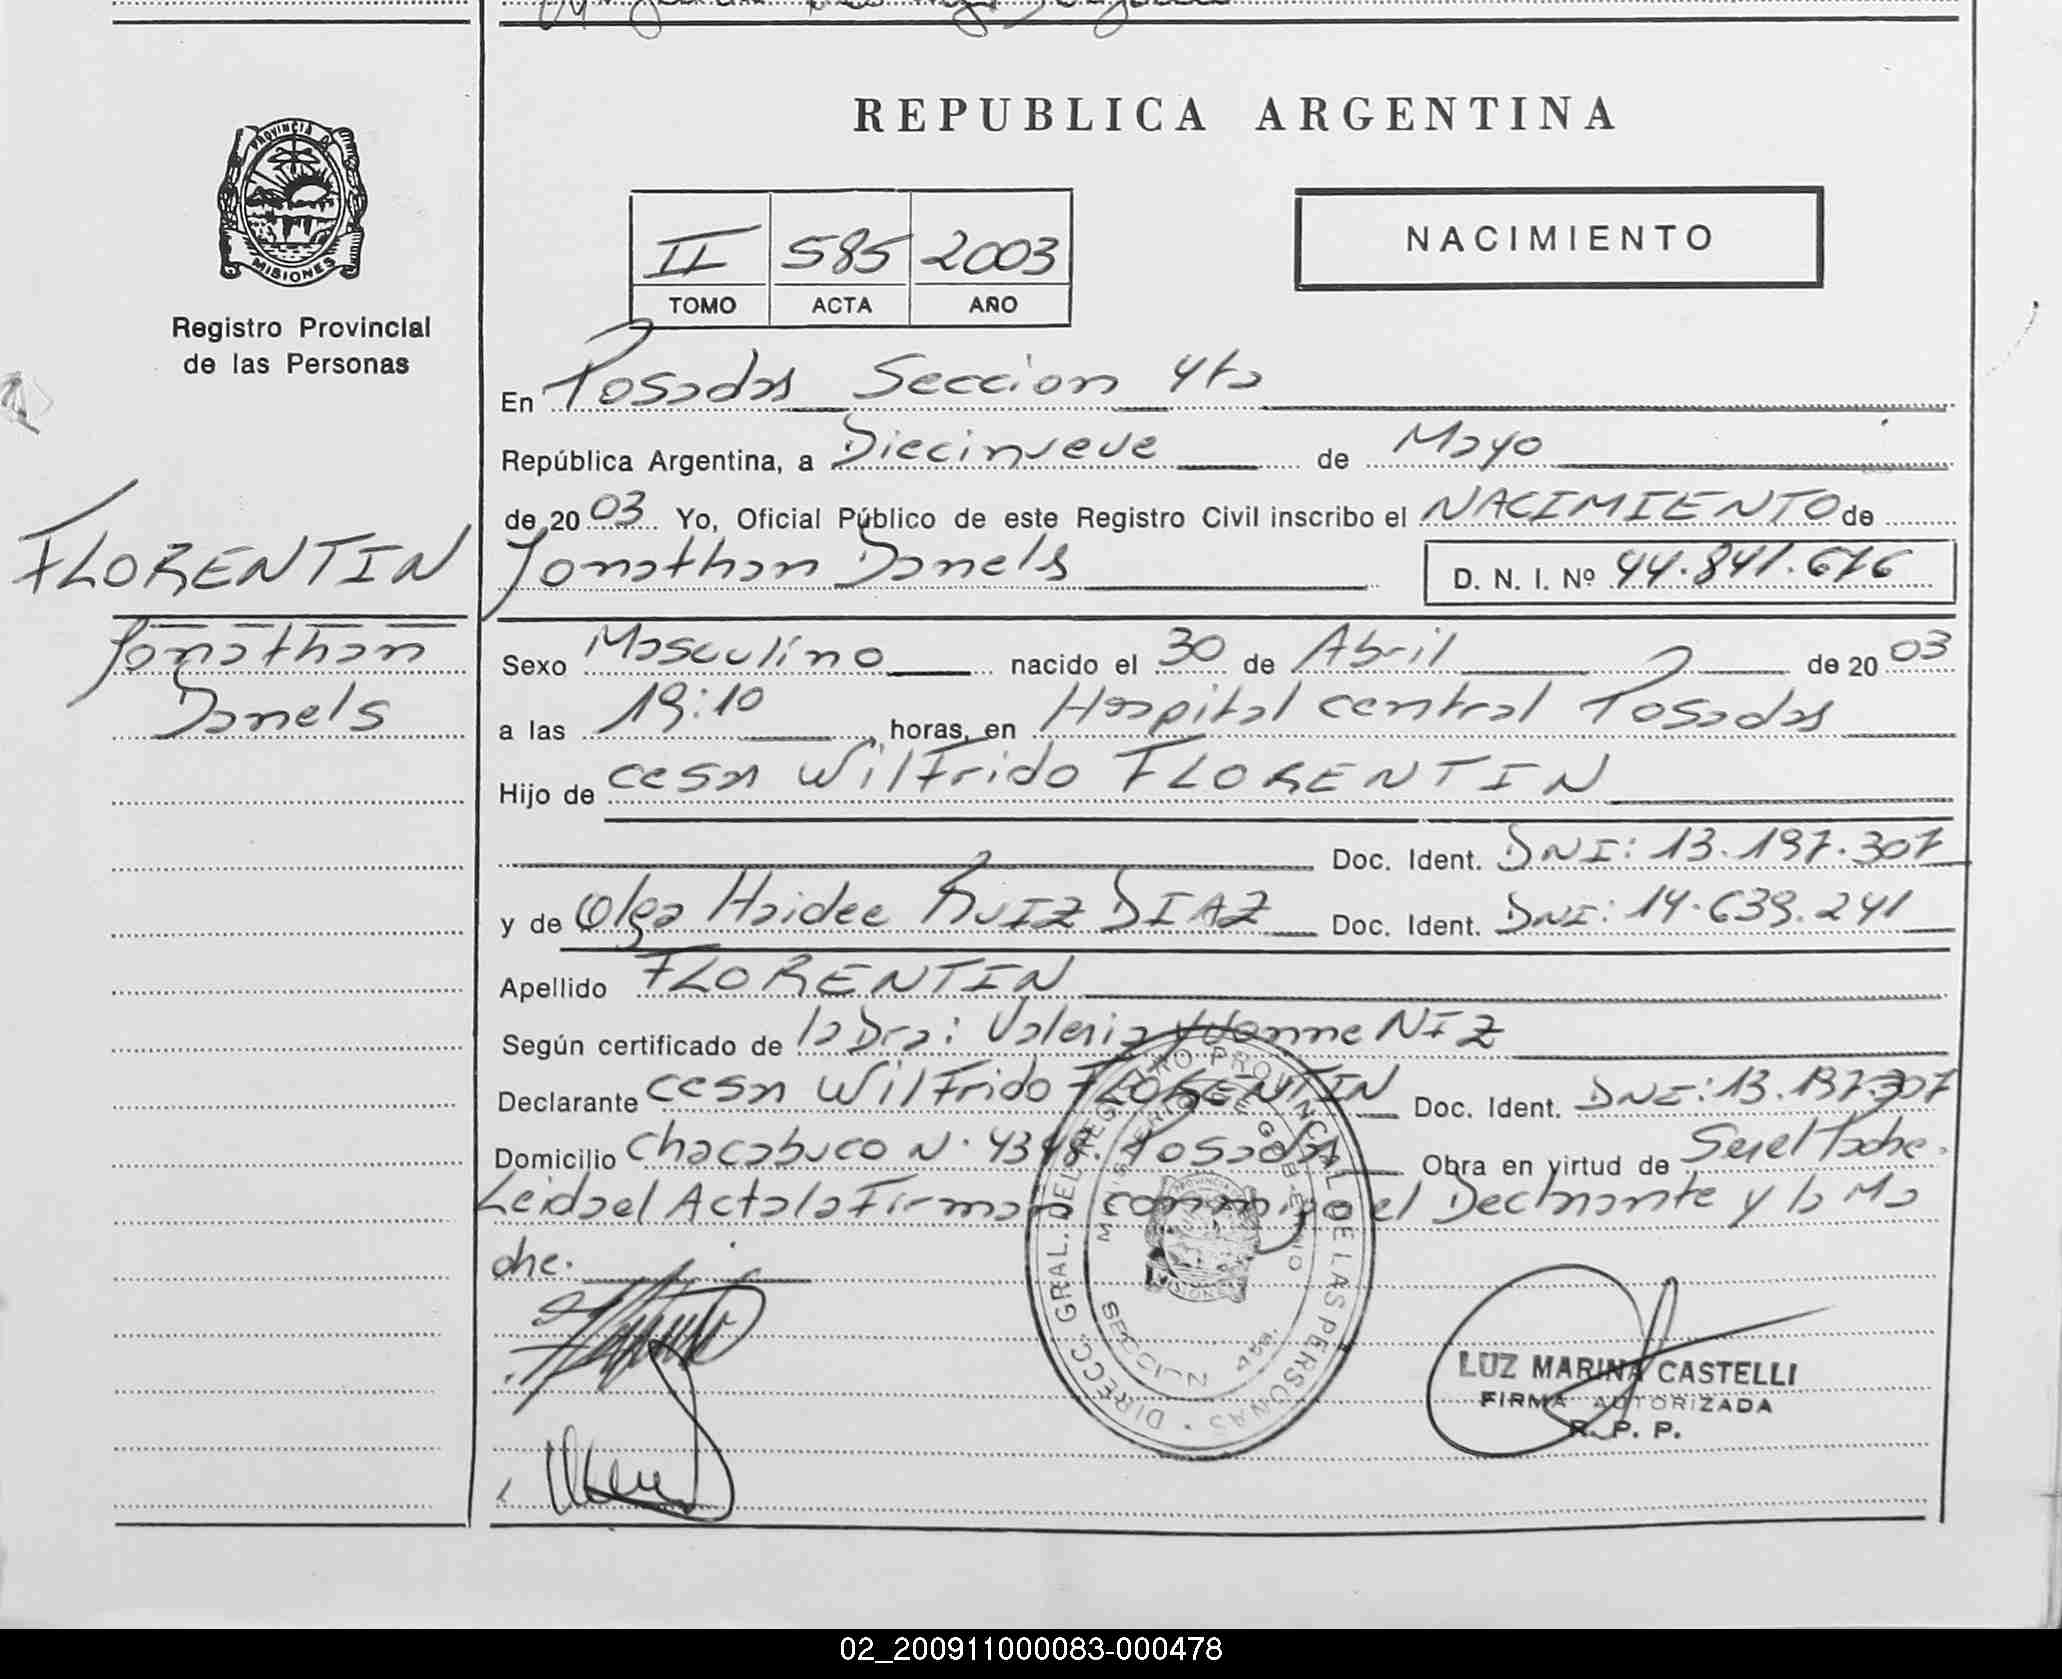 REPUBLICA ARGENTINA
PROVINCIA DE
MISIONES
Registro Provincial
de las Personas
II 585 2003
TOMO ACTA AÑO
NACIMIENTO
En Posadas Seccion 4ta
República Argentina, a Diecinueve de Mayo
de 2003 Yo, Oficial Público de este Registro Civil inscribo el NACIMIENTO de
Jonathan Danels D. N. I. Nº 44.841.676
FLORENTIN
Jonathan
Danels
Sexo Masculino nacido el 30 de Abril de 2003
a las 19:10 horas, en Hospital central Posadas
Hijo de cesar Wilfrido FLORENTIN
Doc. Ident. DNI: 13.197.307
y de Olga Haidee RUIZ DIAZ Doc. Ident. DNI: 14.639.241
Apellido FLORENTIN
Según certificado de la Dra: Valeria Yvonne NIZ
Declarante cesar Wilfrido FLORENTIN Doc. Ident. DNI: 13.197.307
Domicilio Chacabuco N· 4348. Posadas Obra en virtud de Ser el Padre.
Leida el Acta la Firman conmigo el Declarante y la Ma
dre.
DIRECC. GRAL. DEL REGISTRO PROVINCIAL DE LAS PERSONAS
MINISTERIO DE GOBIERNO
SECCION 4ta.
LUZ MARINA CASTELLI
FIRMA AUTORIZADA
R. P. P.
02_200911000083-000478